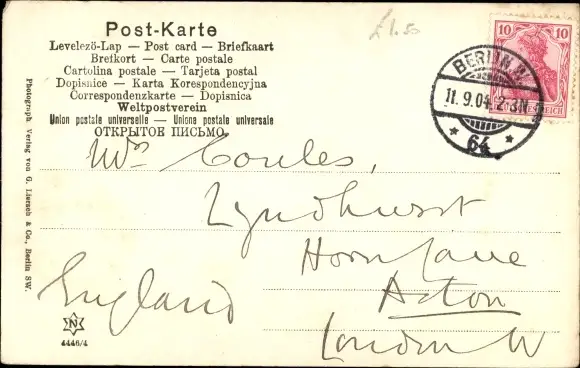 Post-Karte
Levelezö-Lap — Post card — Briefkaart
Brefkort — Carte postale
Cartolina postale — Tarjeta postal
Dopisnice — Karta Korespondencyjna
Correspondenzkarte — Dopisnica
Weltpostverein
Union postale universelle — Unione postale universale
ОТКРЫТОЕ ПИСЬМО
£1.50
10 10
REICH
BERLIN
11.9.04. 2-3N
* 64 *
Mrs Coules,
Lyndhurst
Horn Lane
Acton
London W
England
Photograph. Verlag von G. Liersch & Co., Berlin SW.
N
4446/4